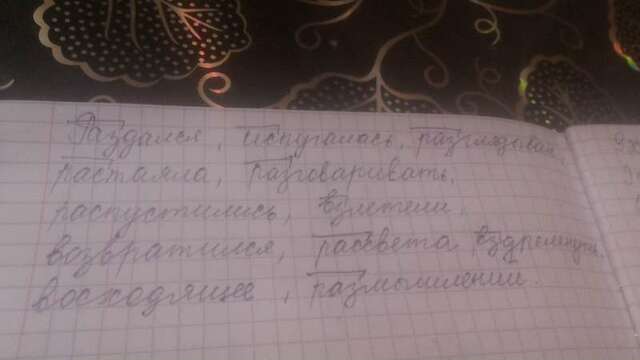 Раздался, испугалась, разглядовал,
растаяла, разговаривать,
распустились, взлетели,
возвратился, рассвета вздремнули
восходящее, размышлении.